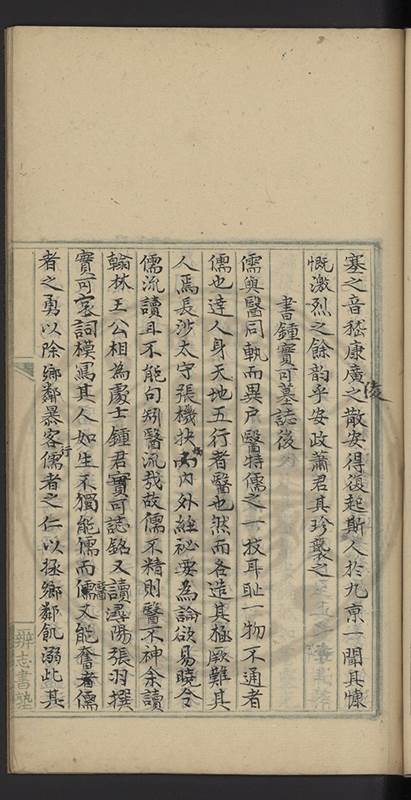 塞之音嵇康廣之散安得復起斯人於九京一聞其慷
慨激烈之餘韵乎安政蕭君其珍襲之
書鍾寶可墓誌後
儒與醫同軌而異戶醫特儒之一技耳耻一物不通者
儒也達人身天地五行者醫也然而各造其極厥難其
人焉長沙太守張機抉內外經祕要為論欲易曉令
儒流讀且不能句矧醫流哉故儒不精則醫不神余讀
翰林王公相為處士鍾君寶可誌銘又讀潯陽張羽撰
寶可客詞模寫其人如生不獨能儒而醫又能奮儒
者之勇以除鄉鄰暴客行儒者之仁以拯鄉鄰飢溺此其
辨志書塾